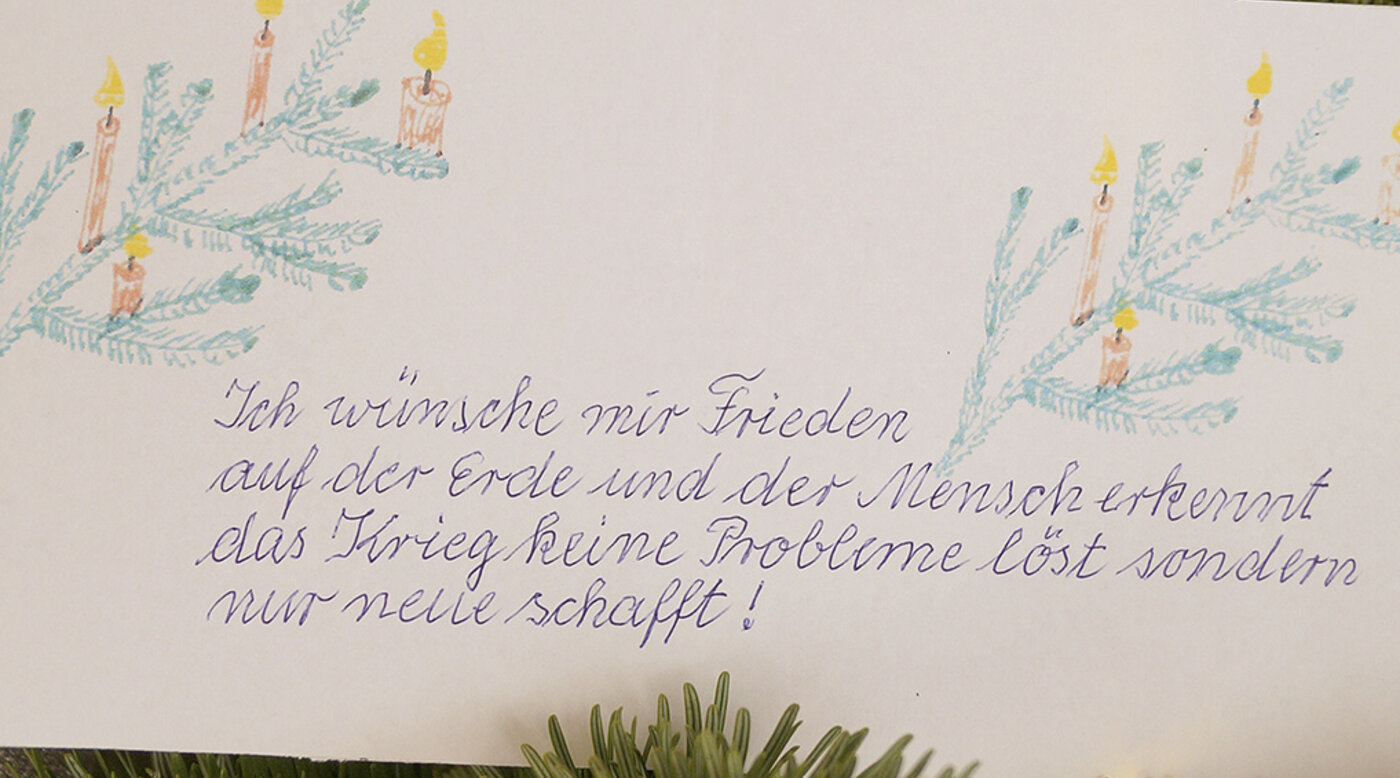 Ich wünsche mir Frieden
auf der Erde und der Mensch erkennt
das Krieg keine Probleme löst sondern
nur neue schafft!